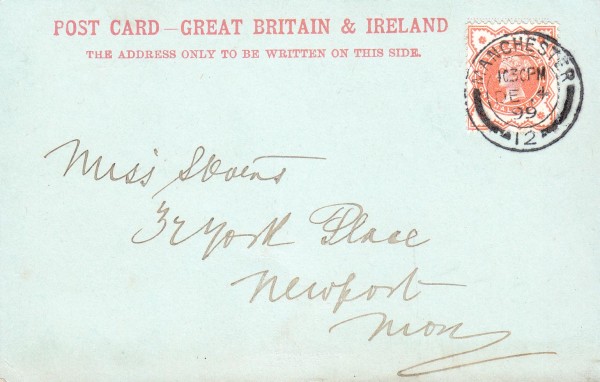 POST CARD—GREAT BRITAIN & IRELAND
THE ADDRESS ONLY TO BE WRITTEN ON THIS SIDE.
MANCHESTER
10 30 PM
DE
99
12
Miss
32 York Place
Newport
Mon